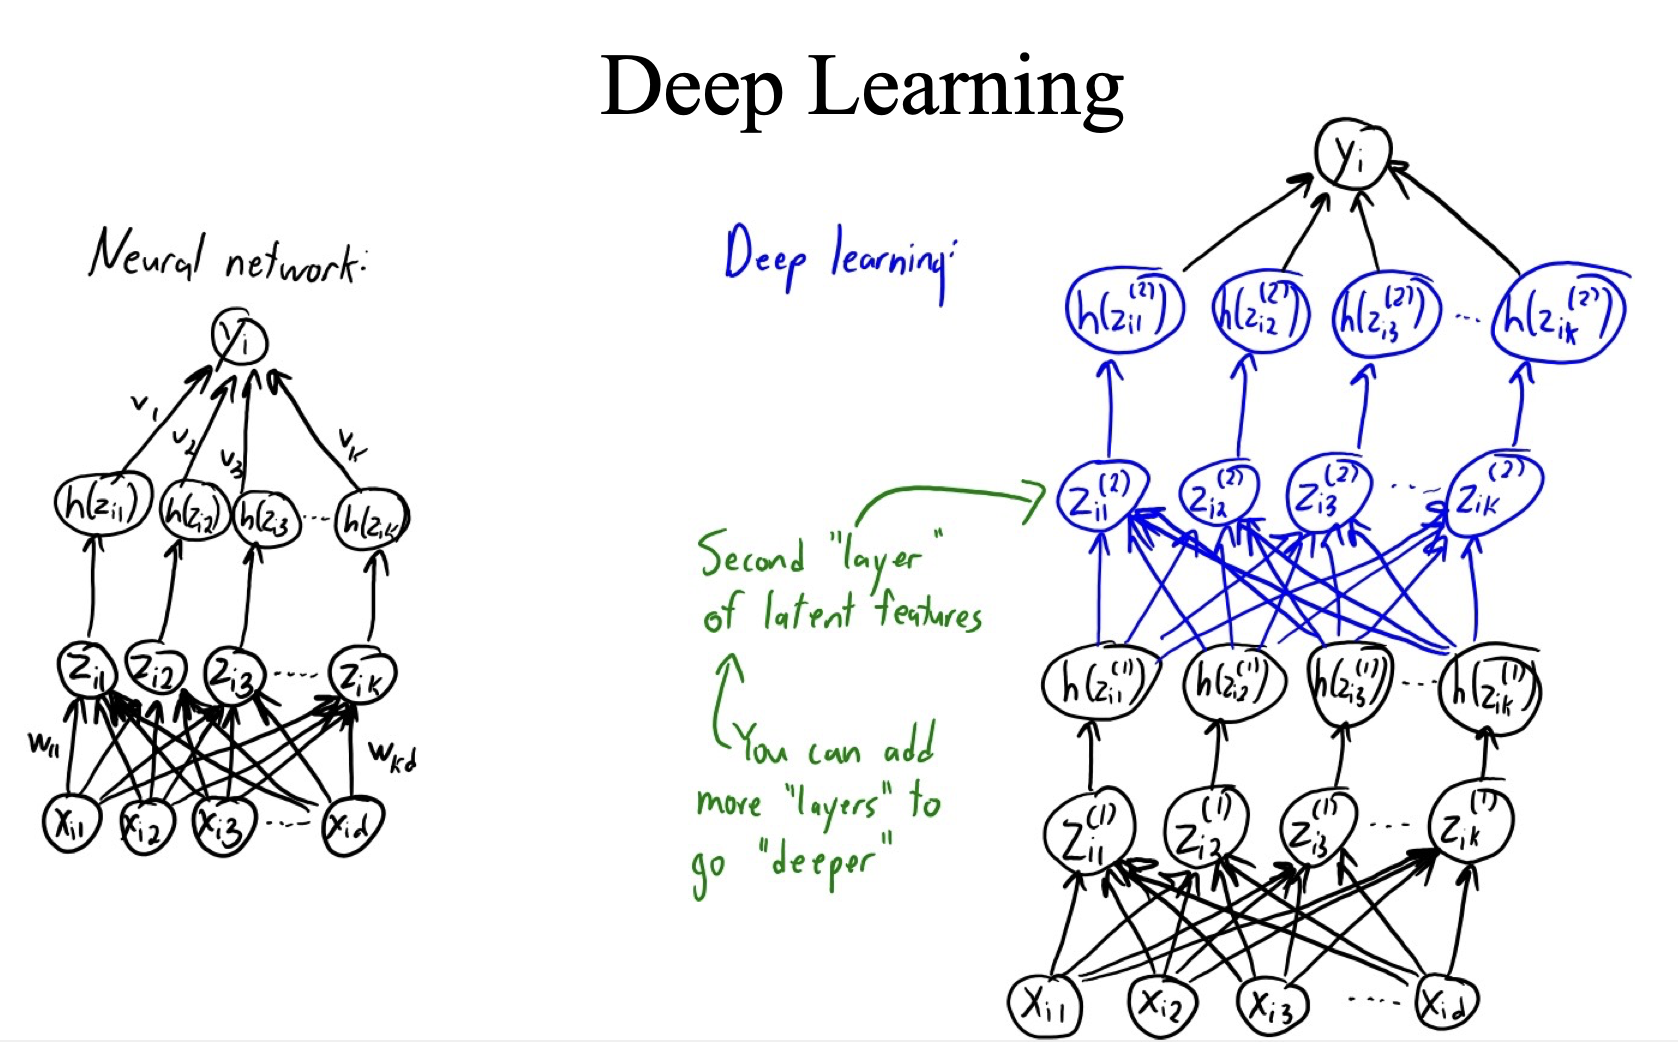 Deep Learning
Neural network:
yi
v1 v2 v3 vk
h(zi1) h(zi2) h(zi3 h(zik)
zi1 zi2 zi3 ---- zik
w11 wkd
xi1 xi2 xi3 ---- xid
Deep learning:
yi
h(zi1(2)) h(zi2(2)) h(zi3(2)) ... h(zik(2))
zi1(2) zi2(2) zi3(2) ... zik(2)
Second "layer"
of latent features
h(zi1(1)) h(zi2(1)) h(zi3(1)) ... h(zik(1))
You can add
more "layers" to
go "deeper"
zi1(1) zi2(1) zi3(1) ---- zik(1)
xi1 xi2 xi3 ---- xid